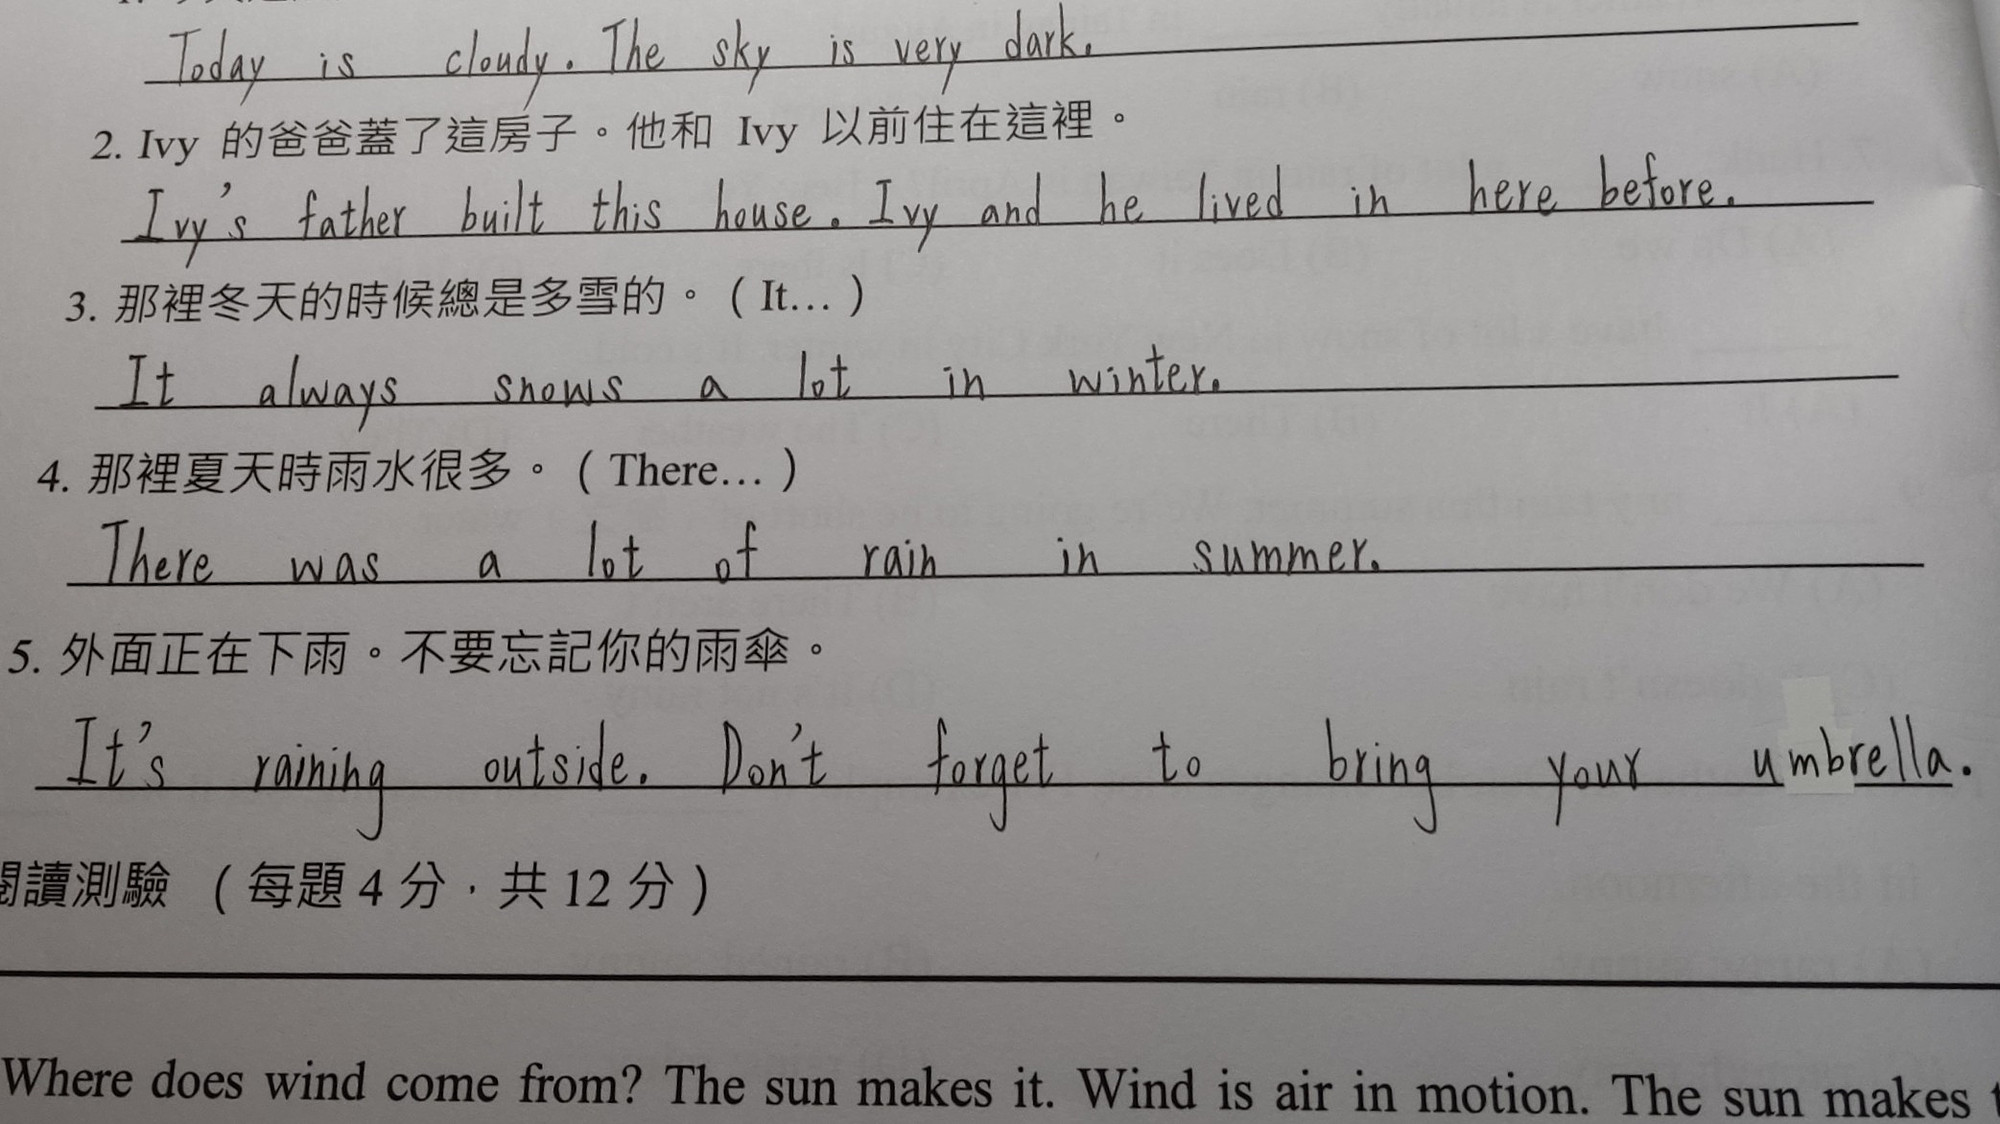 Today is cloudy. The sky is very dark.
2. Ivy 的爸爸蓋了這房子。他和 Ivy 以前住在這裡。
Ivy's father built this house. Ivy and he lived in here before.
3. 那裡冬天的時候總是多雪的。(It…)
It always snows a lot in winter.
4. 那裡夏天時雨水很多。(There…)
There was a lot of rain in summer.
5. 外面正在下雨。不要忘記你的雨傘。
It's raining outside. Don't forget to bring your umbrella.
閱讀測驗 (每題 4 分,共 12 分)
Where does wind come from? The sun makes it. Wind is air in motion. The sun makes